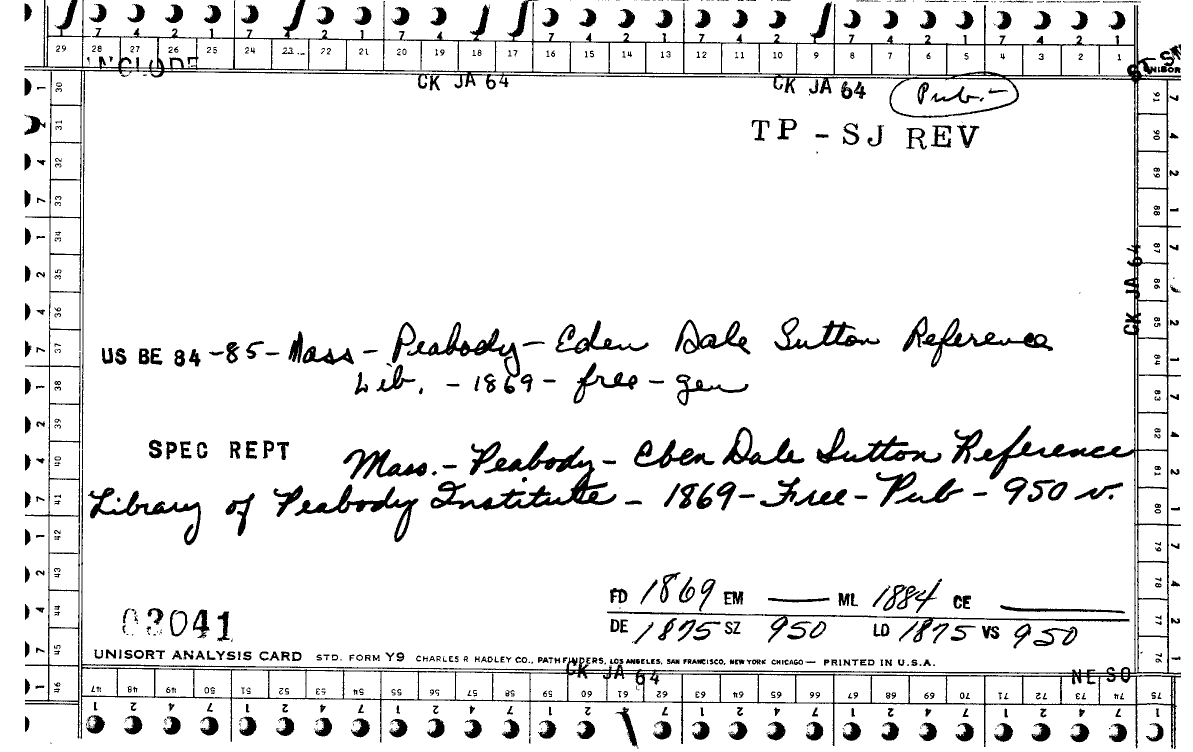 7 4 2 1 7 4 2 1 7 4 2 1 7 4 2 1 7 4 2 1 7 4 2 1 7 4 2 1
29 28 27 26 25 24 23 22 21 20 19 18 17 16 15 14 13 12 11 10 9 8 7 6 5 4 3 2 1
INCLUDE
CK JA 64 CK JA 64 Pub.-
TP - SJ REV
CK JA 64
US BE 84-85- Mass - Peabody - Eden Dale Sutton Reference
Lib. - 1869 - free - gen
SPEC REPT Mass. - Peabody - Eben Dale Sutton Reference
Library of Peabody Institute - 1869 - Free - Pub - 950 v.
FD 1869 EM — ML 1884 CE —
DE 1875 SZ 950 LD 1875 VS 950
03041
UNISORT ANALYSIS CARD STD. FORM Y9 CHARLES R HADLEY CO., PATHFINDERS, LOS ANGELES, SAN FRANCISCO, NEW YORK CHICAGO — PRINTED IN U.S.A.
CK JA 64 NE SO
47 48 49 50 51 52 53 54 55 56 57 58 59 60 61 62 63 64 65 66 67 68 69 70 71 72 73 74 75